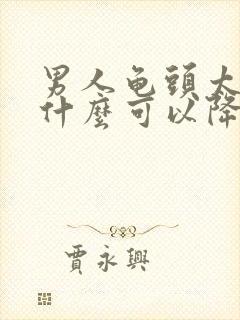 男人龟頭太
什麼可以降
賈永興